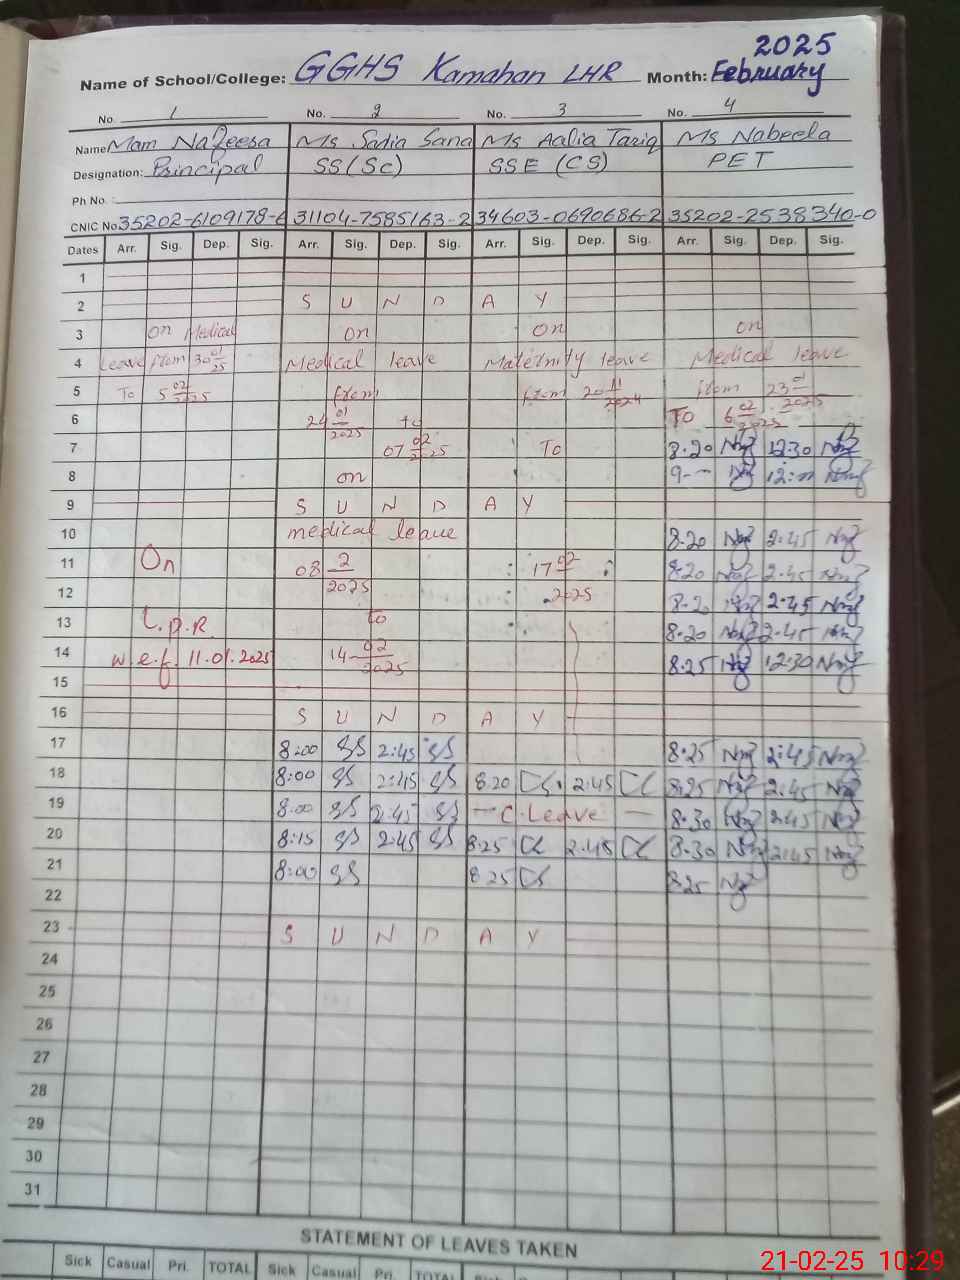 2025
Name of School/College: GGHS Kamahan LHR Month: February
No. 1 No. 2 No. 3 No. 4
Name Mam Nafeesa Ms Sadia Sana Ms Aalia Tariq Ms Nabeela
Designation: Principal SS (Sc) SSE (CS) PET
Ph No.:
CNIC No 35202-6109178-6 31104-7585163-2 34603-0690686-2 35202-2538340-0
Dates Arr. Sig. Dep. Sig. Arr. Sig. Dep. Sig. Arr. Sig. Dep. Sig. Arr. Sig. Dep. Sig.
1
2 S U N D A Y
3 On Medical on on on
4 Leave from 30 01/25 Medical leave Maternity leave Medical leave
5 To 5 02/2025 from from 20 11/2024 from 23 01/2025
6 24 01/2025 to To 6 02/2025
7 07 02/2025 To 8.20 12:30
8 on 9-
9 S U N D A Y
10 medical leave 8.20 2.45
11 On 08 2/2025 17 02 8.20 2.45
12 2025 8.20 2.45
13 L.p.R. to 8.20 2.45
14 w.e.f. 11.01.2025 14-02/2025 8.25 12:30
15
16 S U N D A Y
17 8:00 SS 2:45 SS 8.25 2:45
18 8:00 SS 2:45 SS 8.20 2.45 8.25 2.45
19 8:00 SS 2:45 SS - C. Leave - 8.30 2.45
20 8:15 SS 2:45 SS 8.25 2.45 8.30 2:45
21 8:00 SS 8.25 8.25
22
23 S U N D A Y
24
25
26
27
28
29
30
31
STATEMENT OF LEAVES TAKEN
Sick Casual Pri. TOTAL Sick Casual Pri. TOTAL Sick
21-02-25 10:29